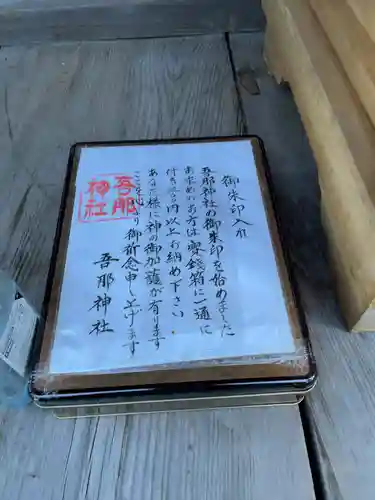 御朱印入れ
吾那神社の御朱印を始めました
お求めのお方は賽銭箱に一通に
付き300円以上お納め下さい
あなた様に神の御加護が有ります
こと心より御祈念申し上げます
吾那神社
吾那
神社